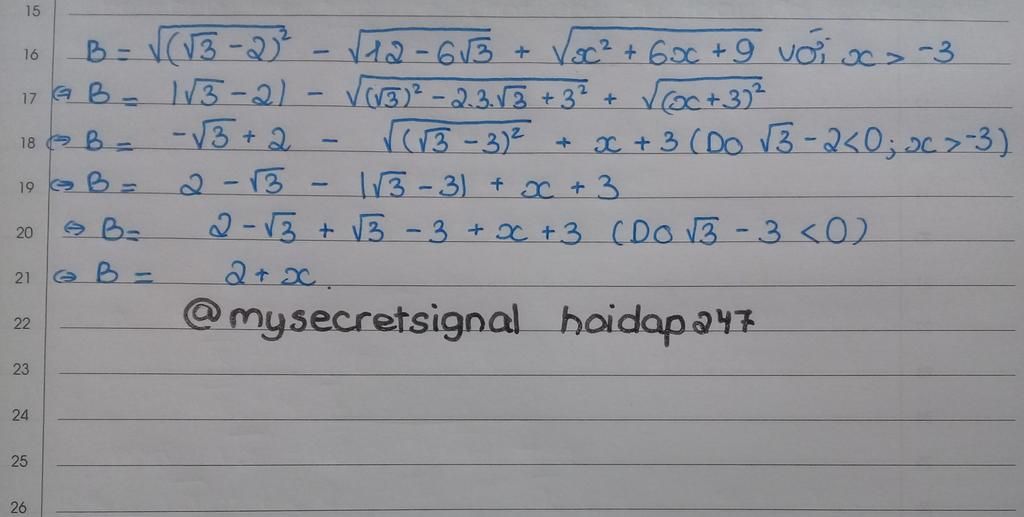 15
16 B = √(√3 - 2)² - √12 - 6√3 + √x² + 6x + 9 với x > -3
17 ⇔ B = |√3 - 2| - √(√3)² - 2.3.√3 + 3² + √(x + 3)²
18 ⇔ B = -√3 + 2 - √(√3 - 3)² + x + 3 (Do √3 - 2 < 0; x > -3)
19 ⇔ B = 2 - √3 - |√3 - 3| + x + 3
20 ⇔ B = 2 - √3 + √3 - 3 + x + 3 (Do √3 - 3 < 0)
21 ⇔ B = 2 + x.
22 @mysecretsignal hoidap247
23
24
25
26